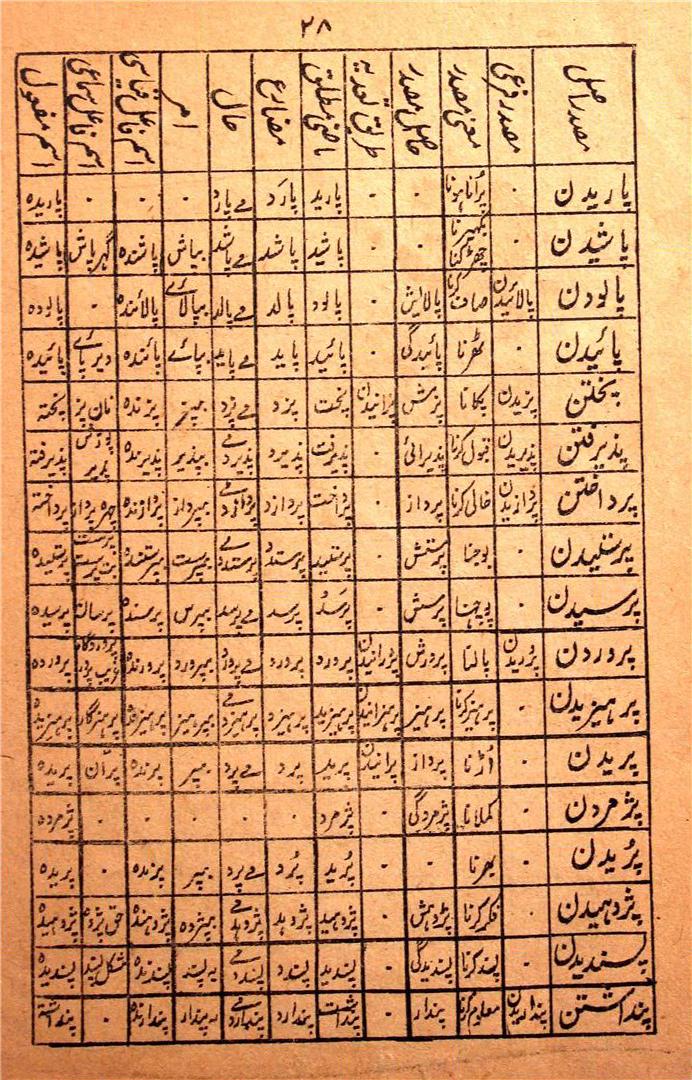 ۲۸
مصدر اصلی مصدر فرعی معنی مصدر حاصل مصدر طریق تعدیہ ماضی مطلق مضارع حال امر اسم فاعل قیاسی اسم فاعل سماعی اسم مفعول
پاریدن ۰ پُرانا ہونا ۰ ۰ پارید پارَد مے پارَد ۰ ۰ ۰ پاریدہ
پاشیدن ۰ بکھیرنا چھڑکنا ۰ ۰ پاشید پاشد مے پاشد بپاش پاشندہ گہر پاش پاشیدہ
پالودن پالائیدن صاف کرنا پالایش ۰ پالود پالد مے پالد بپالاے پالائندہ ۰ پالودہ
پائیدن ۰ ٹھرنا پائیدگی ۰ پائید پاید مے پاید بپاے پائندہ دیرپاے پائیدہ
پختن پزیدن پکانا پزش پزانیدن پخت پزد مے پزد بپز پزندہ نان پز پختہ
پذیرفتن پذیریدن قبول کرنا پذیرائی ۰ پذیرفت پذیرد مے پذیرد بپذیر پذیرندہ پوزش پذیر پذیرفتہ
پرداختن پردازیدن خالی کرنا پرداز ۰ پرداخت پردازد مے پردازد بپرداز پردازندہ چہرہ پرداز پرداختہ
پرستیدن ۰ پوجنا پرستش ۰ پرستید پرستد مے پرستد بپرست پرستندہ بت پرست پرستیدہ
پرسیدن ۰ پوچھنا پرسش ۰ پرسد پرسد مے پرسد بپرس پرسندہ پرسان پرسیدہ
پروردن پروریدن پالنا پرورش پرورانیدن پرورد پرورد مے پرورد بپرورد پرورندہ پروردگار غریب پرور پروردہ
پرہیزیدن ۰ پرہیز کرنا پرہیز پرہیزانیدن پرہیزید پرہیزد مے پرہیزد بپرہیز پرہیزندہ پرہیزگار پرہیزیدہ
پریدن ۰ اُڑنا پرواز پرانیدن پرید پرد مے پرد بپر پرندہ پرّان پریدہ
پژمردن ۰ کملانا پژمردگی ۰ پژمرد ۰ ۰ ۰ ۰ ۰ پژمردہ
پُریدن ۰ بھرنا ۰ ۰ پُرید پُرد مے پرد بپر پرندہ ۰ پریدہ
پژدہمیدن ۰ فکر کرنا پژدہش ۰ پژدہمید پژدہد مے پژدہد بپژدہ پژدہندہ حق پژدہ پژدہمیدہ
پسندیدن ۰ پسند کرنا پسندیدگی ۰ پسندید پسندد مے پسندد بہ پسند پسندندہ مشکل پسند پسندیدہ
پنداشتن پنداریدن معلوم کرنا پندار ۰ پنداشت پندارد مے پندارد بہ پندار پندارندہ ۰ پنداشتہ